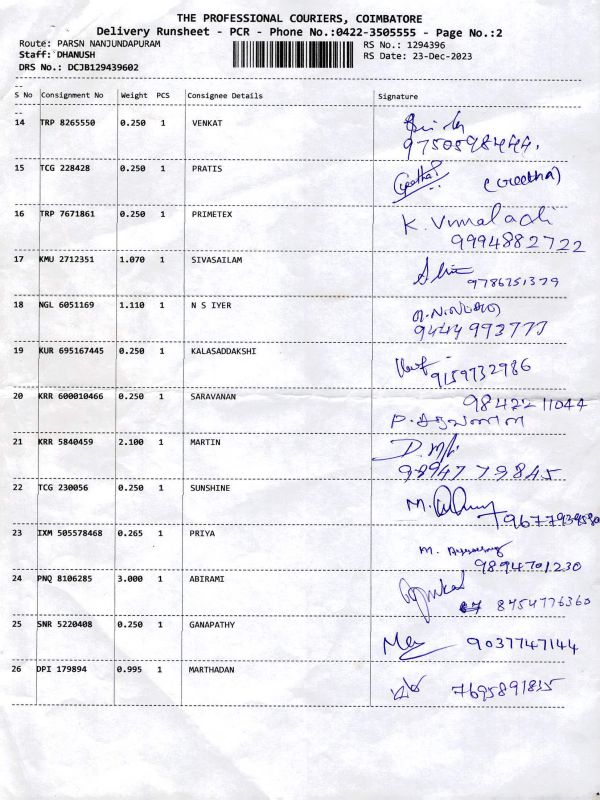 THE PROFESSIONAL COURIERS, COIMBATORE
Delivery Runsheet - PCR - Phone No.:0422-3505555 - Page No.:2
Route: PARSN NANJUNDAPURAM
RS No.: 1294396
Staff: DHANUSH
RS Date: 23-Dec-2023
DRS No.: DCJB129439602
S No Consignment No Weight PCS Consignee Details Signature
14 TRP 8265550 0.250 1 VENKAT
9750598444.
15 TCG 228428 0.250 1 PRATIS
Geetha (Greetha)
16 TRP 7671861 0.250 1 PRIMETEX K. Vimaladi
9994882722
17 KMU 2712351 1.070 1 SIVASAILAM
9786751379
18 NGL 6051169 1.110 1 N S IYER
9444993777
19 KUR 695167445 0.250 1 KALASADDAKSHI
9159732986
20 KRR 600010466 0.250 1 SARAVANAN 9842211044
P. சரவணன்
21 KRR 5840459 2.100 1 MARTIN
98947 79845
22 TCG 230056 0.250 1 SUNSHINE M.
23 IXM 505578468 0.265 1 PRIYA M.
9894701230
24 PNQ 8106285 3.000 1 ABIRAMI
8754776360
25 SNR 5220408 0.250 1 GANAPATHY
9037747144
26 DPI 179894 0.995 1 MARTHADAN
7695891815